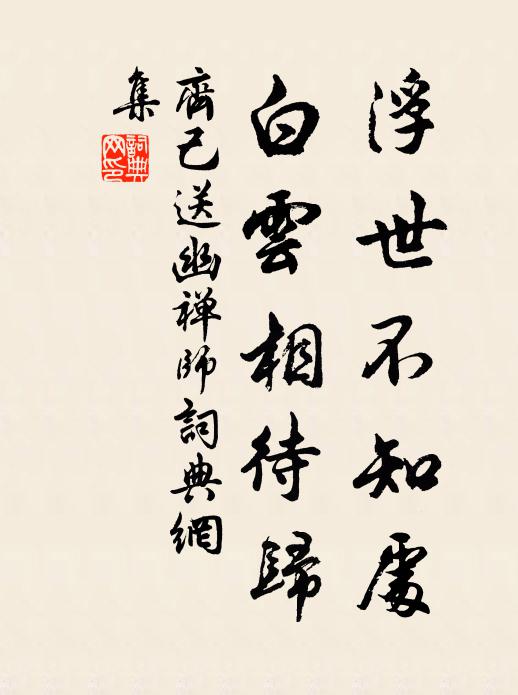 浮世不知處
白雲相待歸
齊己送幽禪師詞典網
集
詞典網印